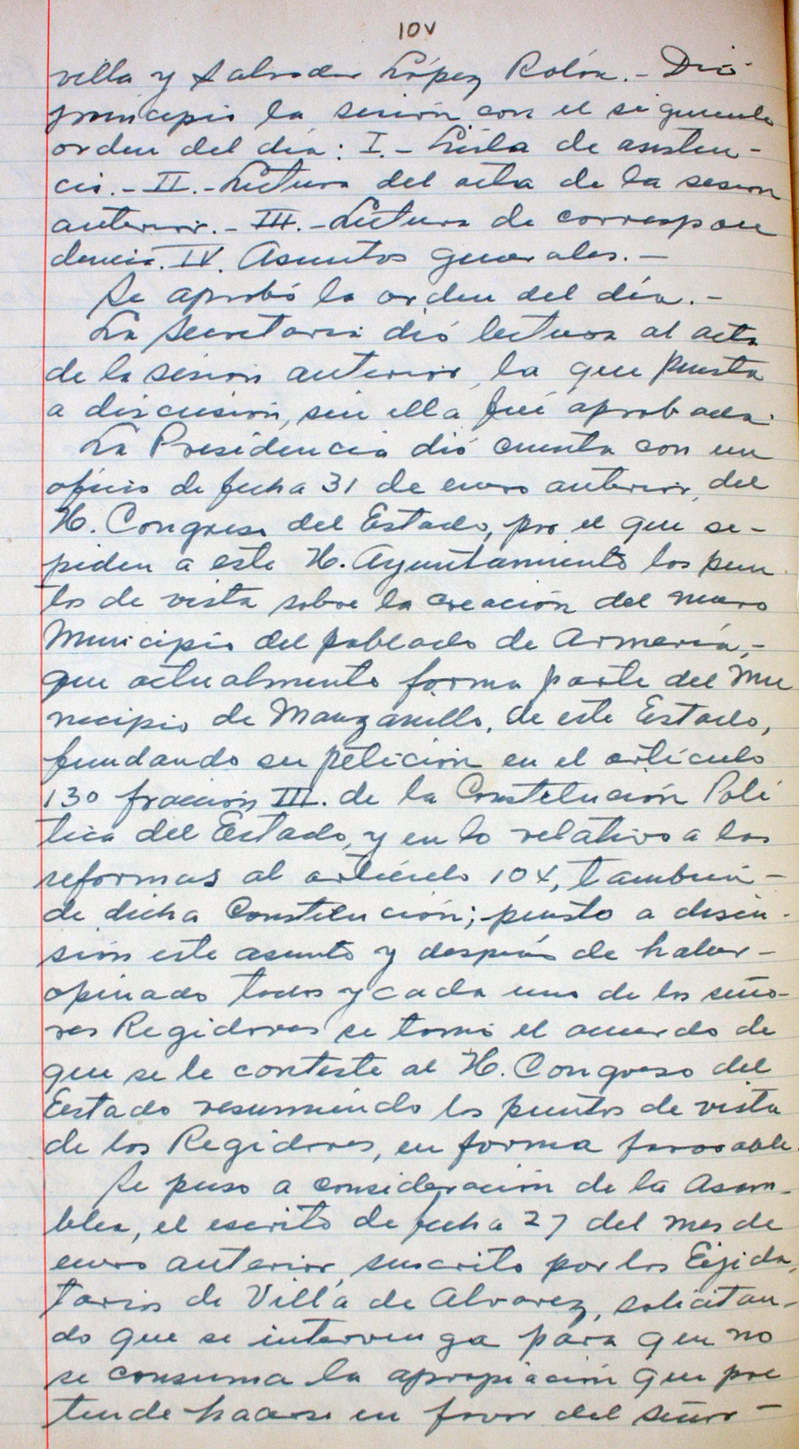 10v
villa y Salvador López Rolón.- Dió
principio la sesión con el siguiente
orden del día: I.- Lista de asisten-
cia.- II.- Lectura del acta de la sesion
anterior.- III.- Lectura de correspon
dencia. IV. Asuntos generales.-
Se aprobó la orden del día.-
La Secretaria dió lectura al acta
de la sesión anterior, la que puesta
a discusión, sin ella fué aprobada.
La Presidencia dió cuenta con un
oficio de fecha 31 de enero anterior, del
H. Congreso del Estado, por el que se-
piden a este H. Ayuntamiento los pun
tos de vista sobre la creación del nuevo
Municipio del poblado de Armería,-
que actualmente forma parte del Mu
nicipio de Manzanillo, de este Estado,
fundando su petición en el artículo
130 fracción III. de la Constitución Polí
tica del Estado, y en lo relativo a las
reformas al artículo 104, también-
de dicha Constitución; puesto a discu-
sión este asunto y después de haber-
opinado todos y cada uno de los seño-
res Regidores se tomó el acuerdo de
que se le conteste al H. Congreso del
Estado resumiendo los puntos de vista
de los Regidores, en forma favorable.
Se puso a consideración de la Asam-
blea, el escrito de fecha 27 del mes de
enero anterior, suscrito por los Ejida-
tarios de Villa de Alvarez, solicitan-
do que se intervenga para que no
se consuma la apropiación que pre
tende hacerse en favor del señor-